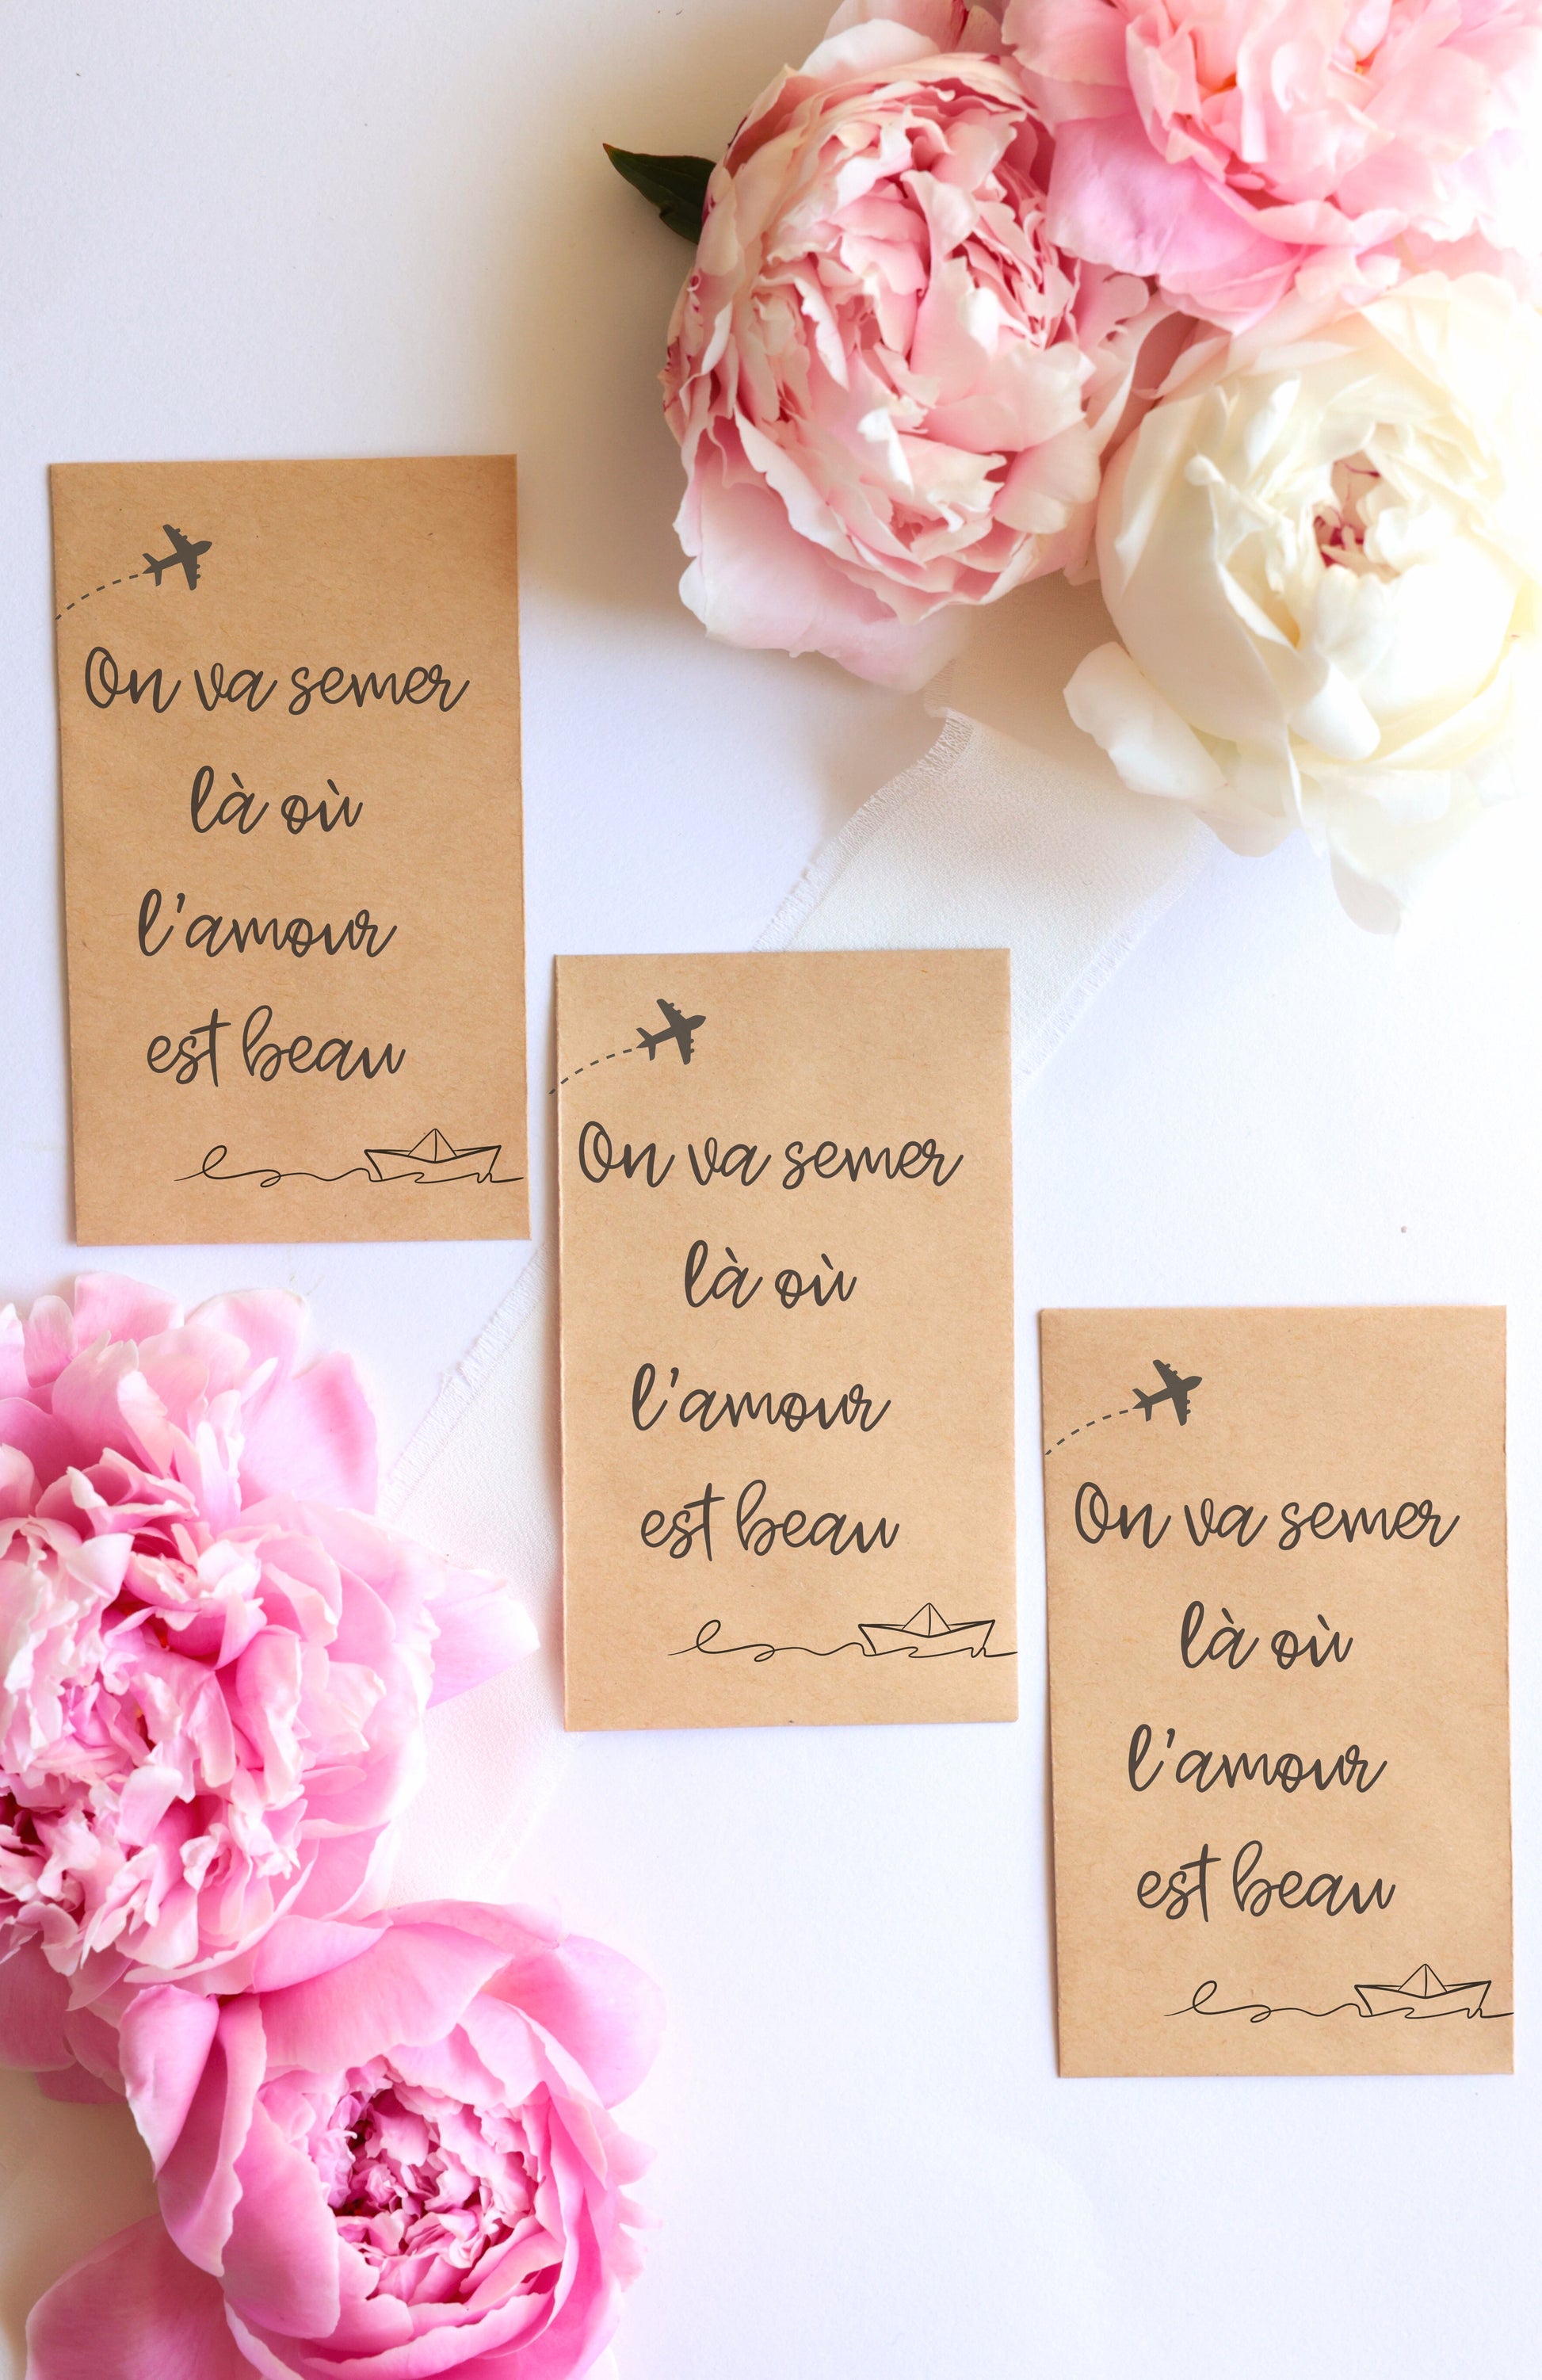 On va semer
là où
l'amour
est beau
On va semer
là où
l'amour
est beau
On va semer
là où
l'amour
est beau